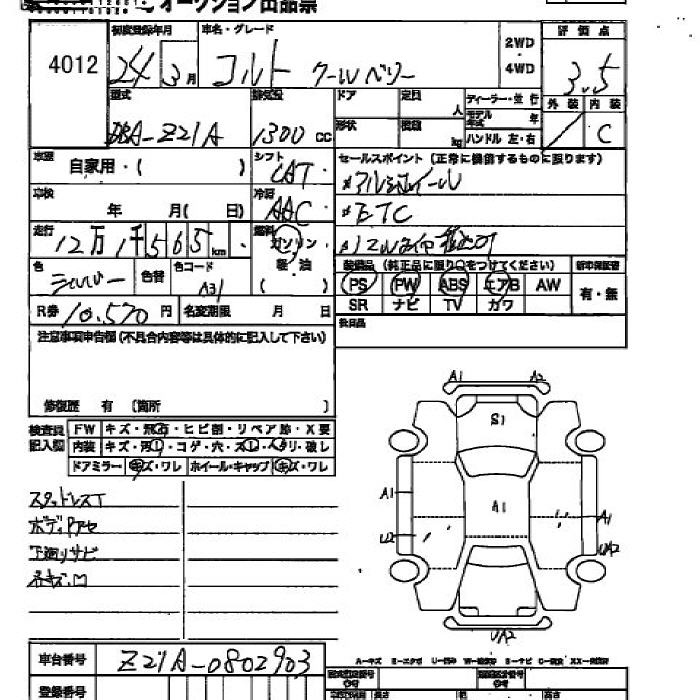 オークション出品票
4012
初度登録年月 車名・グレード 評価点
24 3月 コルト クールベリー 2WD 4WD 3.5
型式 排気量 ドア 定員 人 ディーラー・並行 外装 内装
DBA-Z21A 1300cc 形状 積載 kg モデル年式 年 C
ハンドル 左・右
車歴 自家用・( ) シフト CAT セールスポイント (正常に機能するものに限ります)
車検 年 月( 日) 冷房 AAC アルミホイール
ETC
走行 12万1千565km 燃料 ガソリン 軽・油 ( )
装備品 (純正品に限り○をつけてください) 新車保証書
色 シルバー 色替 色コード A31 PS PW ABS エアB AW 有・無
SR ナビ TV カワ
R券 10,570円 名変期限 月 日
後日品
注意事項申告欄 (不具合内容等は具体的に記入して下さい)
修復歴 有 〔箇所 〕
検査員記入欄 FW キズ・飛石・ヒビ割・リペア跡・X要
内装 キズ・汚レ・コゲ・穴・スレ・ ・破レ
ドアミラー キズ・ワレ ホイール・キャップ キズ・ワレ
スタッドレスT
ボディ
下廻りサビ
A1 A2
S1
A1
A1
A1
U2
UA2
UA2
車台番号 Z21A-0802903
登録番号
A-キズ
長さ 幅 高さ